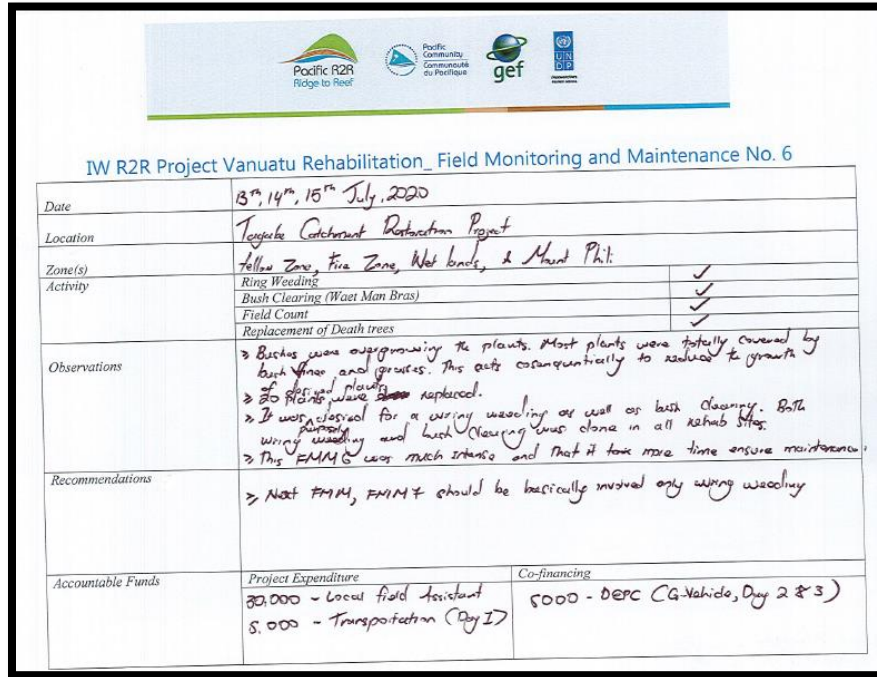 Pacific R2R
Ridge to Reef
Pacific
Community
Communauté
du Pacifique
gef
U N
D P
IW R2R Project Vanuatu Rehabilitation_ Field Monitoring and Maintenance No. 6
Date 13th, 14th, 15th July, 2020
Location Tagabe Catchment Restoration Project
Zone(s) Yellow Zone, Fire Zone, Wet lands, & Mount Phili
Activity Ring Weeding ✓
Bush Clearing (Waet Man Bras) ✓
Field Count ✓
Replacement of Death trees ✓
Observations
> Bushes were overgrowing the plants. Most plants were totally covered by
bush vines and grasses. This acts cosenquntically to reduce te growth
of desired plants
> 20 plants were replaced.
> It was desired for a wring weeding as well as bush clearing. Both
wring weeding and bush clearing was done in all rehab sites.
> This FMM6 was much intense and that it took more time ensure maintenance.
Recommendations
> Next FMM, FMM7 should be basically involved only wring weeding
Accountable Funds Project Expenditure Co-financing
30,000 - Local field Assistant
5,000 - Transportation (Day 1)
5000 - DEPC (G-Vehicle, Day 2 & 3)